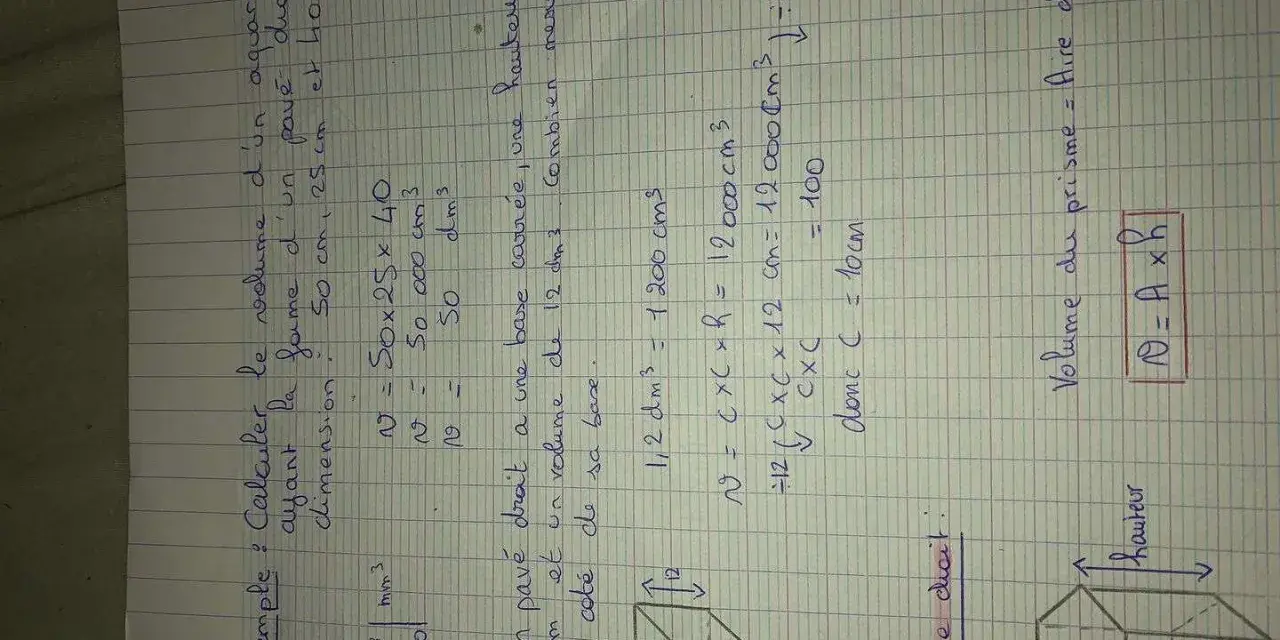 Calculer le volume d'un
ayant la forme d'un pavé
dimension : 50 cm, 25 cm et 40
mm³
V = 50 x 25 x 40
V = 50 000 cm³
V = 50 dm³
pavé droit a une base carrée, une hauteur
et un volume de 12 dm³. Combien
coté de sa base.
12
1,2 dm³ = 1 200 cm³
V = C x C x h = 12 000 cm³
÷12 ( C x C x 12 cm = 12 000 cm³
C x C = 100
donc C = 10 cm
droit :
Volume du prisme = Aire
hauteur
V = A x h